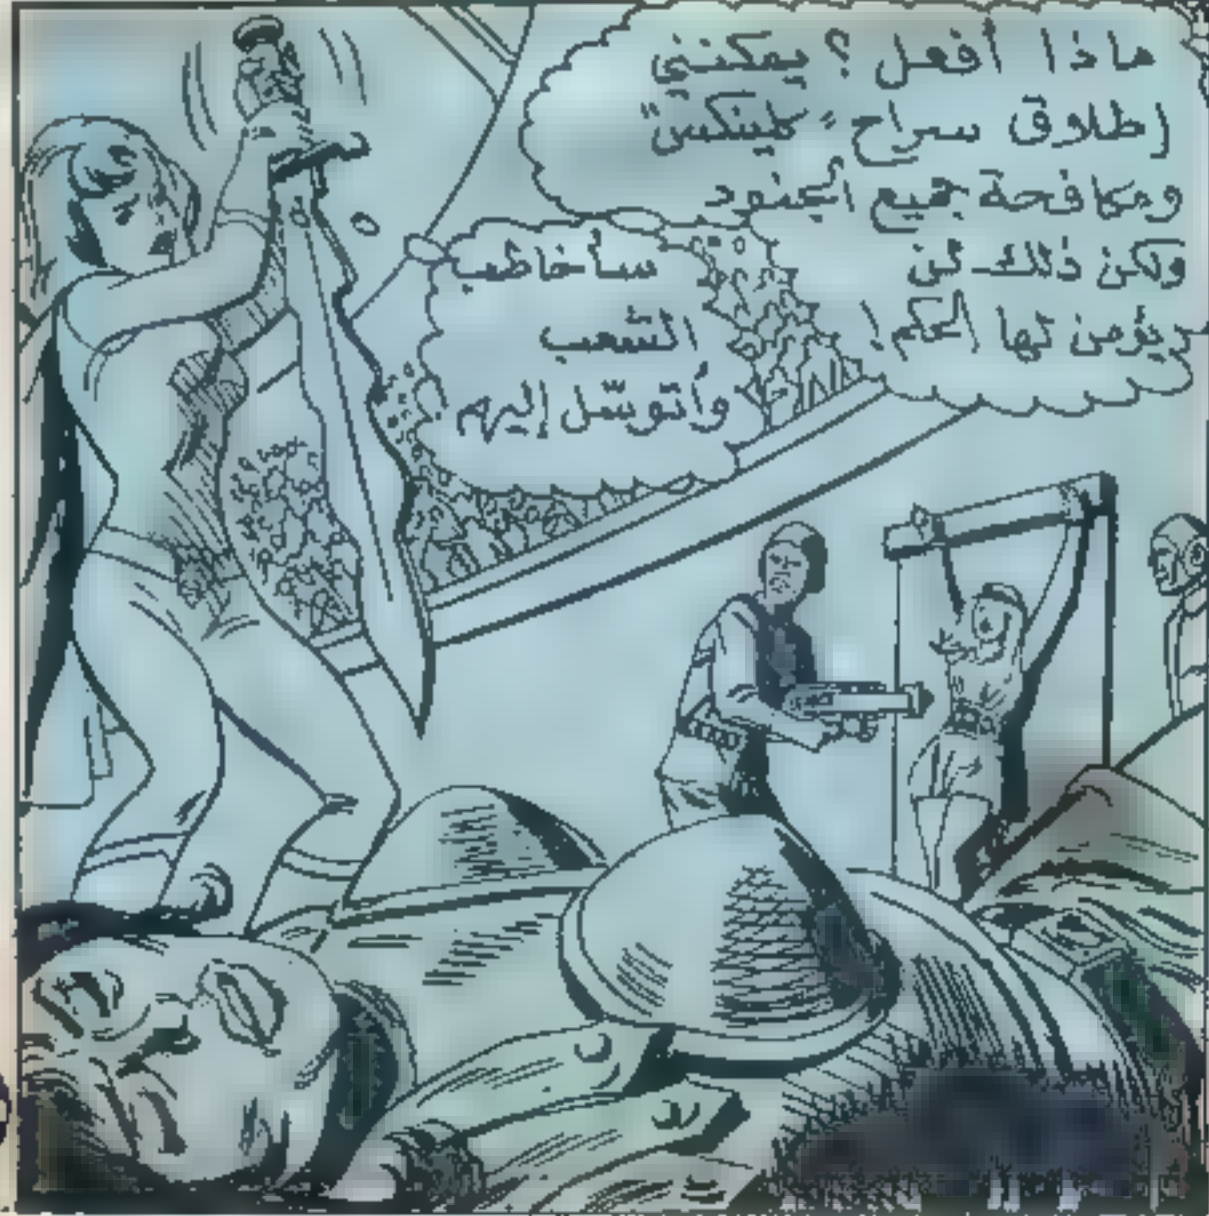 ماذا أفعل ؟ يمكنني
إطلاق سراح "كلينكس"
ومكافحة جميع الجنود
ولكن ذلك لن
يؤمن لها الحكم !
سأخاطب
الشعب
وأتوسّل إليهم